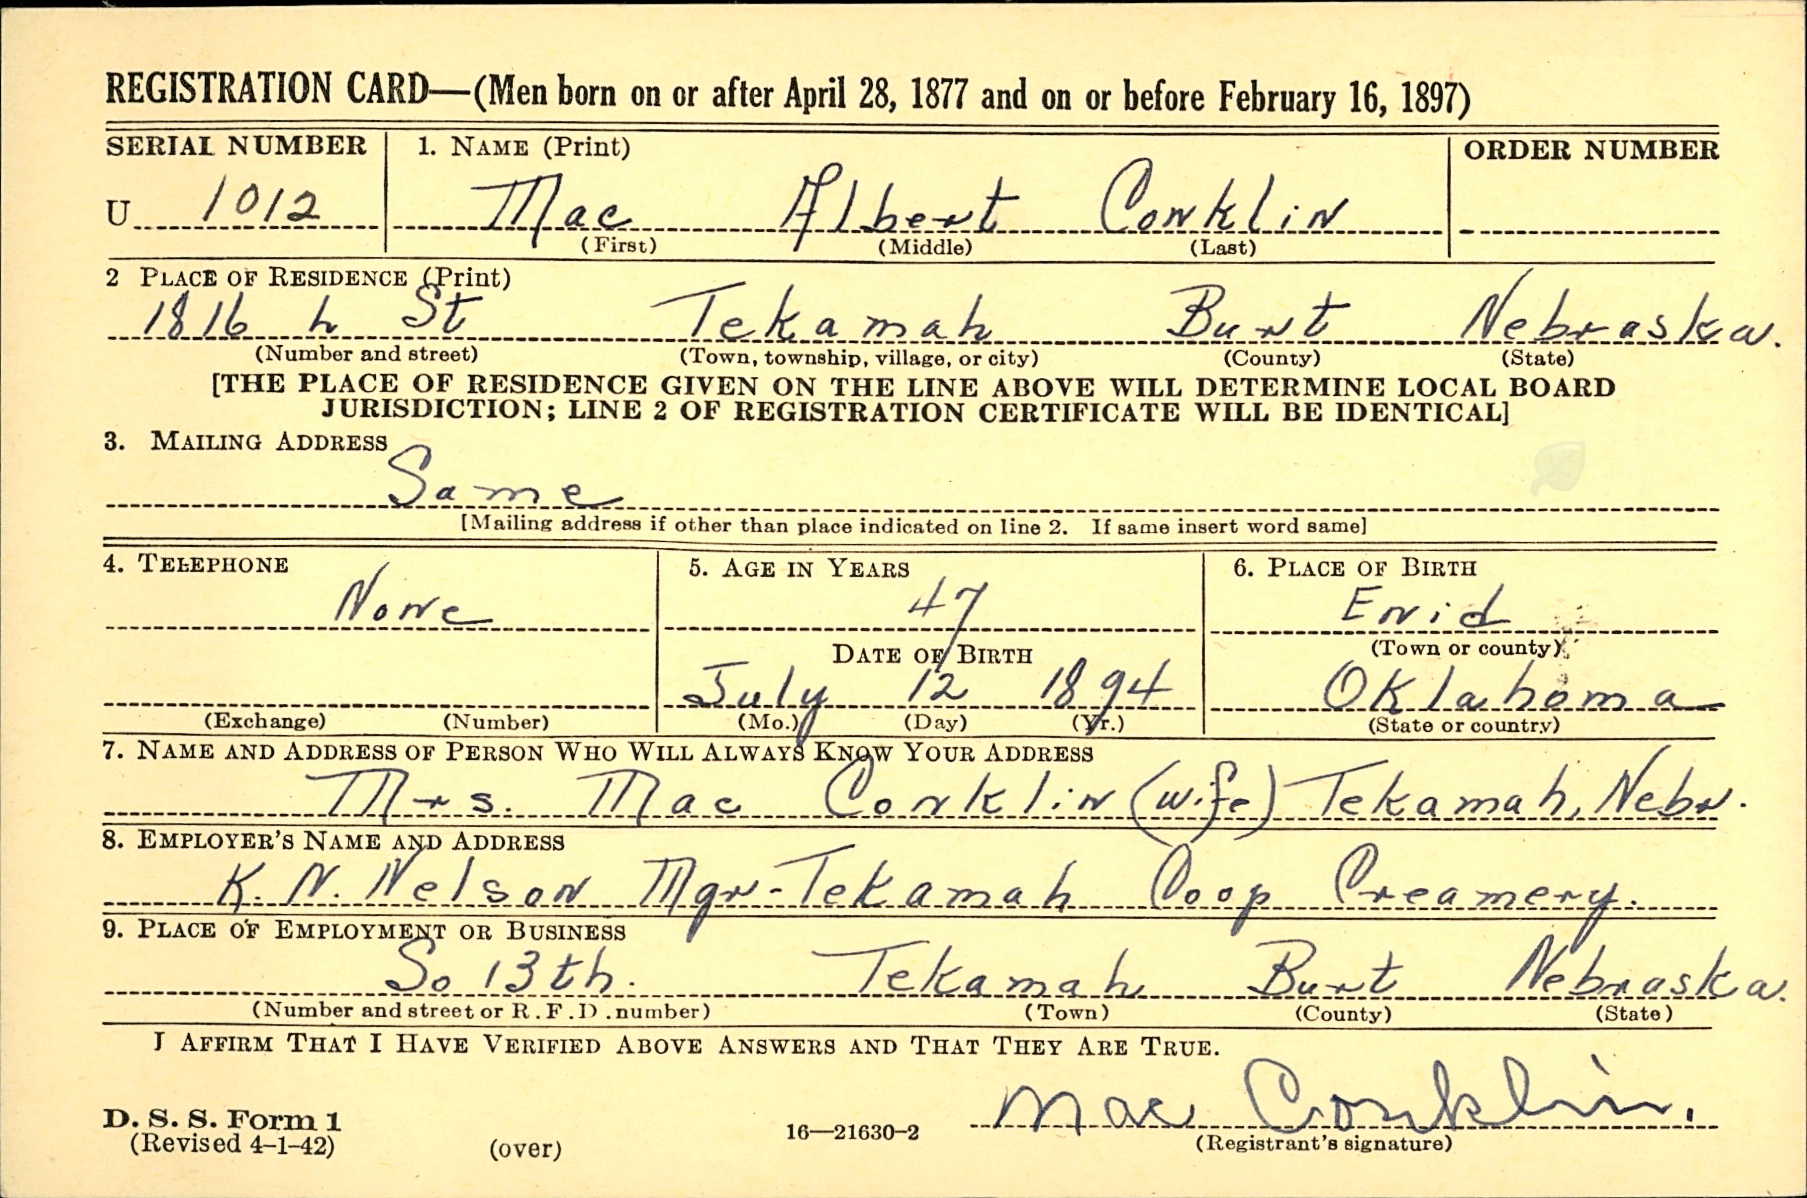 REGISTRATION CARD—(Men born on or after April 28, 1877 and on or before February 16, 1897)
SERIAL NUMBER 1. NAME (Print) ORDER NUMBER
U 1012 Mac Albert Conklin
(First) (Middle) (Last)
2 PLACE OF RESIDENCE (Print)
1816 h St Tekamah Burt Nebraska.
(Number and street) (Town, township, village, or city) (County) (State)
[THE PLACE OF RESIDENCE GIVEN ON THE LINE ABOVE WILL DETERMINE LOCAL BOARD
JURISDICTION; LINE 2 OF REGISTRATION CERTIFICATE WILL BE IDENTICAL]
3. MAILING ADDRESS
Same
[Mailing address if other than place indicated on line 2. If same insert word same]
4. TELEPHONE 5. AGE IN YEARS 6. PLACE OF BIRTH
None 47 Enid
DATE OF BIRTH (Town or county)
July 12 1894 Oklahoma
(Exchange) (Number) (Mo.) (Day) (Yr.) (State or country)
7. NAME AND ADDRESS OF PERSON WHO WILL ALWAYS KNOW YOUR ADDRESS
Mrs. Mac Conklin (wife) Tekamah, Nebr.
8. EMPLOYER'S NAME AND ADDRESS
K. N. Nelson Mgr-Tekamah Coop Creamery.
9. PLACE OF EMPLOYMENT OR BUSINESS
So 13th. Tekamah Burt Nebraska.
(Number and street or R.F.D. number) (Town) (County) (State)
I AFFIRM THAT I HAVE VERIFIED ABOVE ANSWERS AND THAT THEY ARE TRUE.
Mac Conklin.
D. S. S. Form 1
(Revised 4-1-42) (over) 16—21630-2 (Registrant's signature)